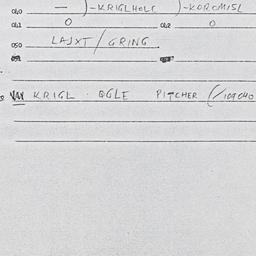 040 — )-KRIGLHOLC )-KOROMISL
041 0 042 0
050 LAJXT/GRING
KRIGL · OGLE PITCHER (/109040